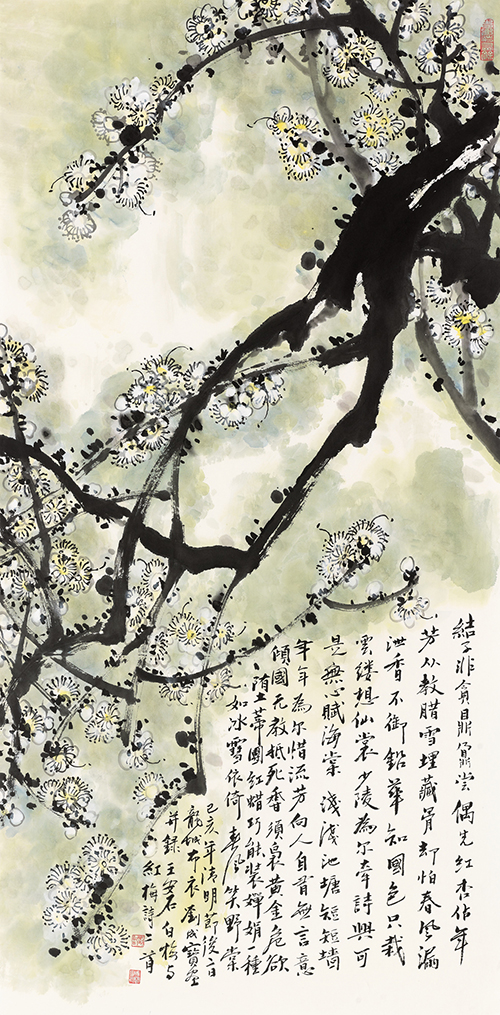 結子非貪鼎鼐嘗偶先紅杏佔年
芳从教腊雪埋藏骨却怕春風漏
泄香不御鉛華知國色只裁
雲縷想仙裳少陵為尔牽詩興可
是無心賦海棠 淺淺池塘短短墻
年年為尔惜流芳向人自有無言意
傾國天教抵死香須裊黃金危欲
墮蒂團紅蜡巧能装嬋娟一種
如冰雪依倚春風笑野棠
己亥年清明節後一日
龍城布衣劉成寶畫
并録王安石白梅与
紅梅詩二首